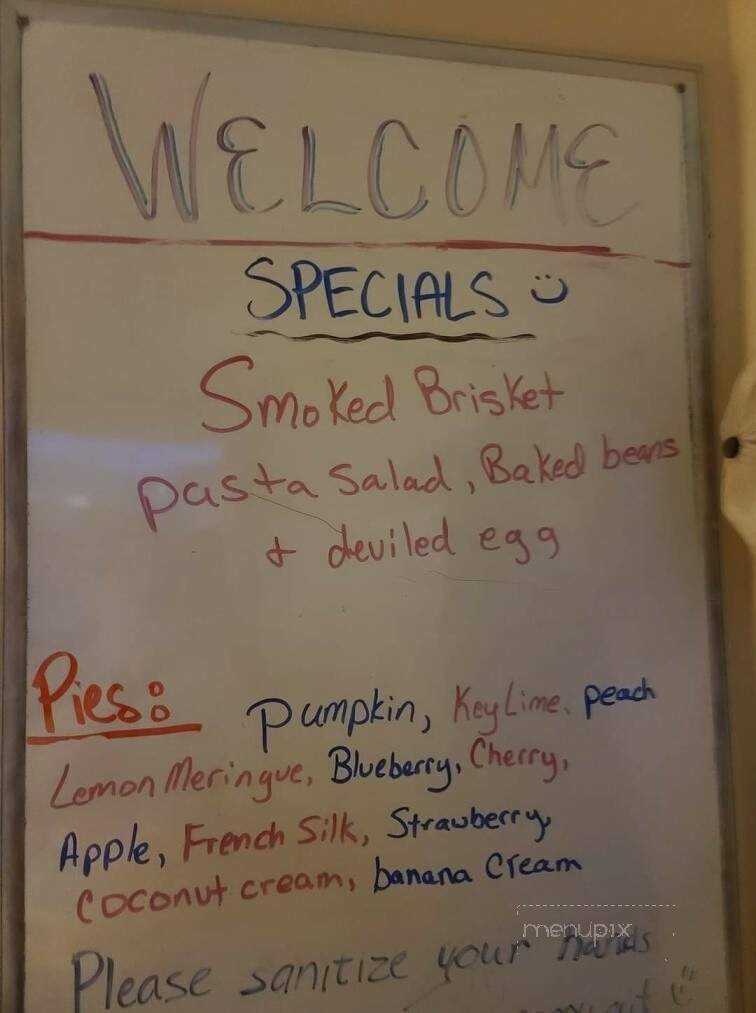 WELCOME
SPECIALS
Smoked Brisket
pasta salad, Baked beans
+ deviled egg
Pies: Pumpkin, Key Lime, peach
Lemon Meringue, Blueberry, Cherry,
Apple, French Silk, Strawberry,
coconut cream, banana Cream
menupix
Please sanitize your hands